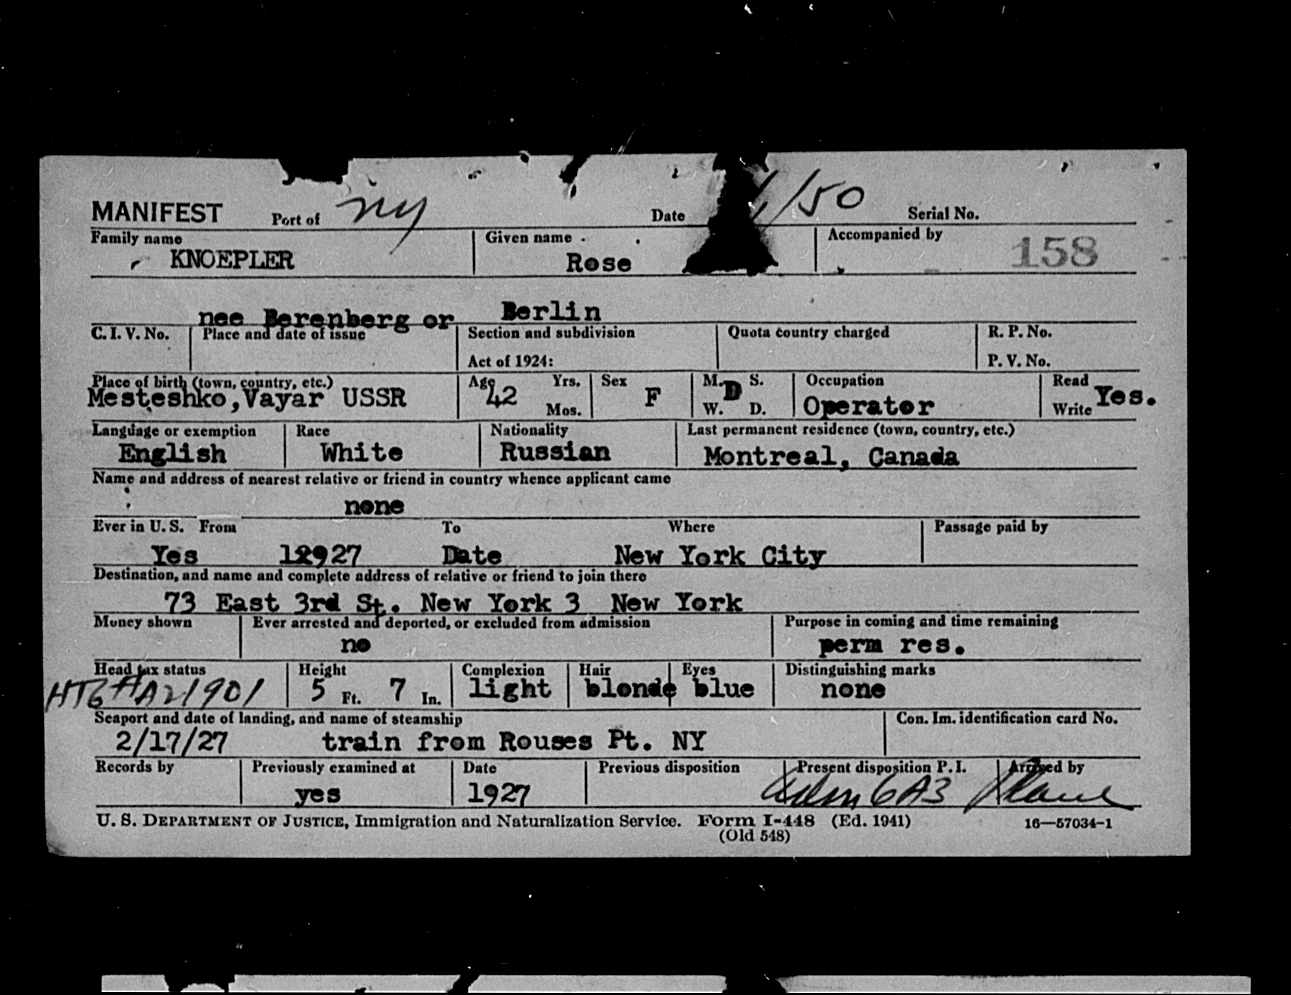 MANIFEST Port of NY Date 1/50 Serial No.
Family name Given name Accompanied by
KNOEPLER Rose 158
nee Berenberg or Berlin
C. I. V. No. Place and date of issue Section and subdivision Quota country charged R. P. No.
Act of 1924: P. V. No.
Place of birth (town, country, etc.) Age Yrs. Sex M. S. Occupation Read
Mesteshko, Vayar USSR 42 Mos. F W. D D. Operator Write Yes.
Language or exemption Race Nationality Last permanent residence (town, country, etc.)
English White Russian Montreal, Canada
Name and address of nearest relative or friend in country whence applicant came
none
Ever in U. S. From To Where Passage paid by
Yes 1927 Date New York City
Destination, and name and complete address of relative or friend to join there
73 East 3rd St. New York 3 New York
Money shown Ever arrested and deported, or excluded from admission Purpose in coming and time remaining
no perm res.
Head tax status Height Complexion Hair Eyes Distinguishing marks
5 Ft. 7 In. light blonde blue none
Seaport and date of landing, and name of steamship Con. Im. identification card No.
2/17/27 train from Rouses Pt. NY
Records by Previously examined at Date Previous disposition Present disposition P. I. Arrived by
yes 1927 6A3 Plane
U. S. DEPARTMENT OF JUSTICE, Immigration and Naturalization Service. Form I-448 (Ed. 1941) 16—57034-1
(Old 548)